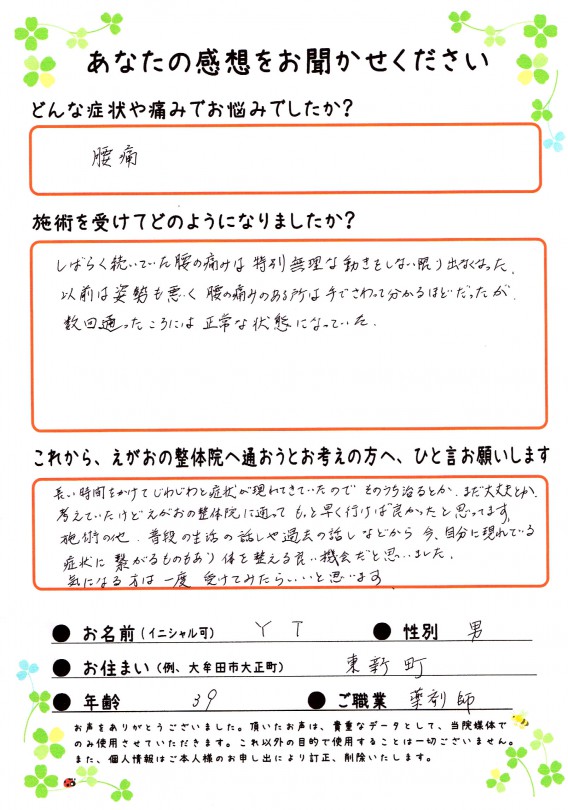 あなたの感想をお聞かせください
どんな症状や痛みでお悩みでしたか?
腰痛
施術を受けてどのようになりましたか?
しばらく続いていた腰の痛みは特別無理な動きをしない限り出なくなった。
以前は姿勢も悪く腰の痛みのある所は手でさわって分かるほどだったが、
数回通ったころには正常な状態になっていた。
これから、えがおの整体院へ通おうとお考えの方へ、ひと言お願いします
長い時間をかけてじわじわと症状が現れてきていたのでそのうち治るとか、まだ大丈夫とか、
考えていたけどえがおの整体院に通ってもっと早く行けば良かったと思ってます。
施術の他、普段の生活の話しや過去の話しなどから今、自分に現れている
症状に繋がるものもあり体を整える良い機会だと思いました。
気になる方は一度受けてみたらいいと思います
● お名前(イニシャル可) Y T ● 性別 男
● お住まい(例、大牟田市大正町) 東新町
● 年齢 39 ● ご職業 薬剤師
お声をありがとうございました。頂いたお声は、貴重なデータとして、当院媒体で
のみ使用させていただきます。これ以外の目的で使用することは一切ございません。
また、個人情報はご本人様のお申し出により訂正、削除いたします。